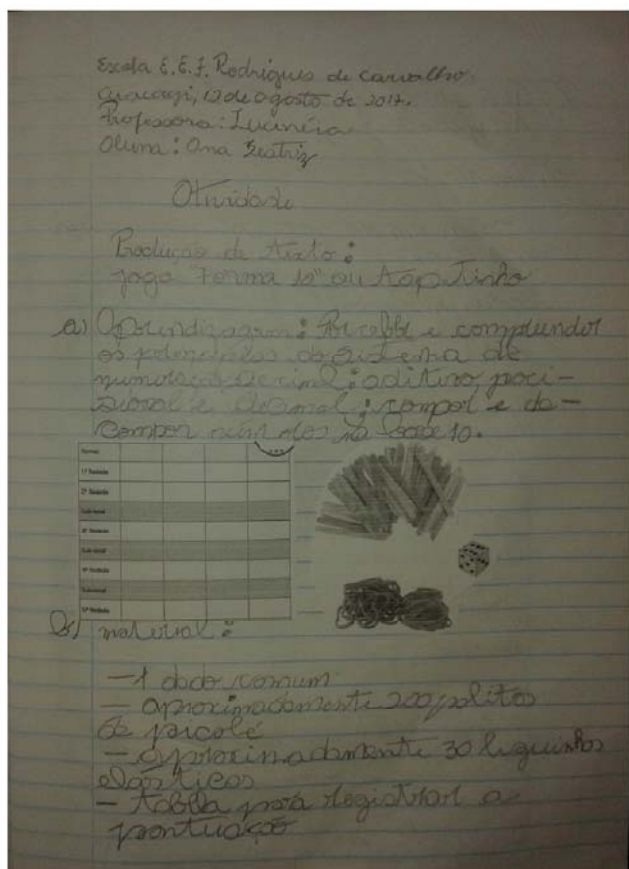 Escola E.E.F. Rodrigues de Carvalho.
Aracoiaji, 12 de agosto de 2017.
Professora: Lucinéia
Aluna: Ana Beatriz
Atividade
Produção de texto:
jogo "Forma 10" ou
a) Aprendizagem: Perceber e compreender
os do sistema de
numeração decimal: aditivo, poci-
sional e decimal; compor e de-
compor números na base 10.
Nomes
1ª Rodada
2ª Rodada
Sub-total
3ª Rodada
Sub-total
4ª Rodada
Sub-total
5ª Rodada
b) material:
-1 dado comum
- aproximadamente 200 palitos
de picolé
- aproximadamente 30 liguinhas
elásticas
- tabela para registrar a
pontuação